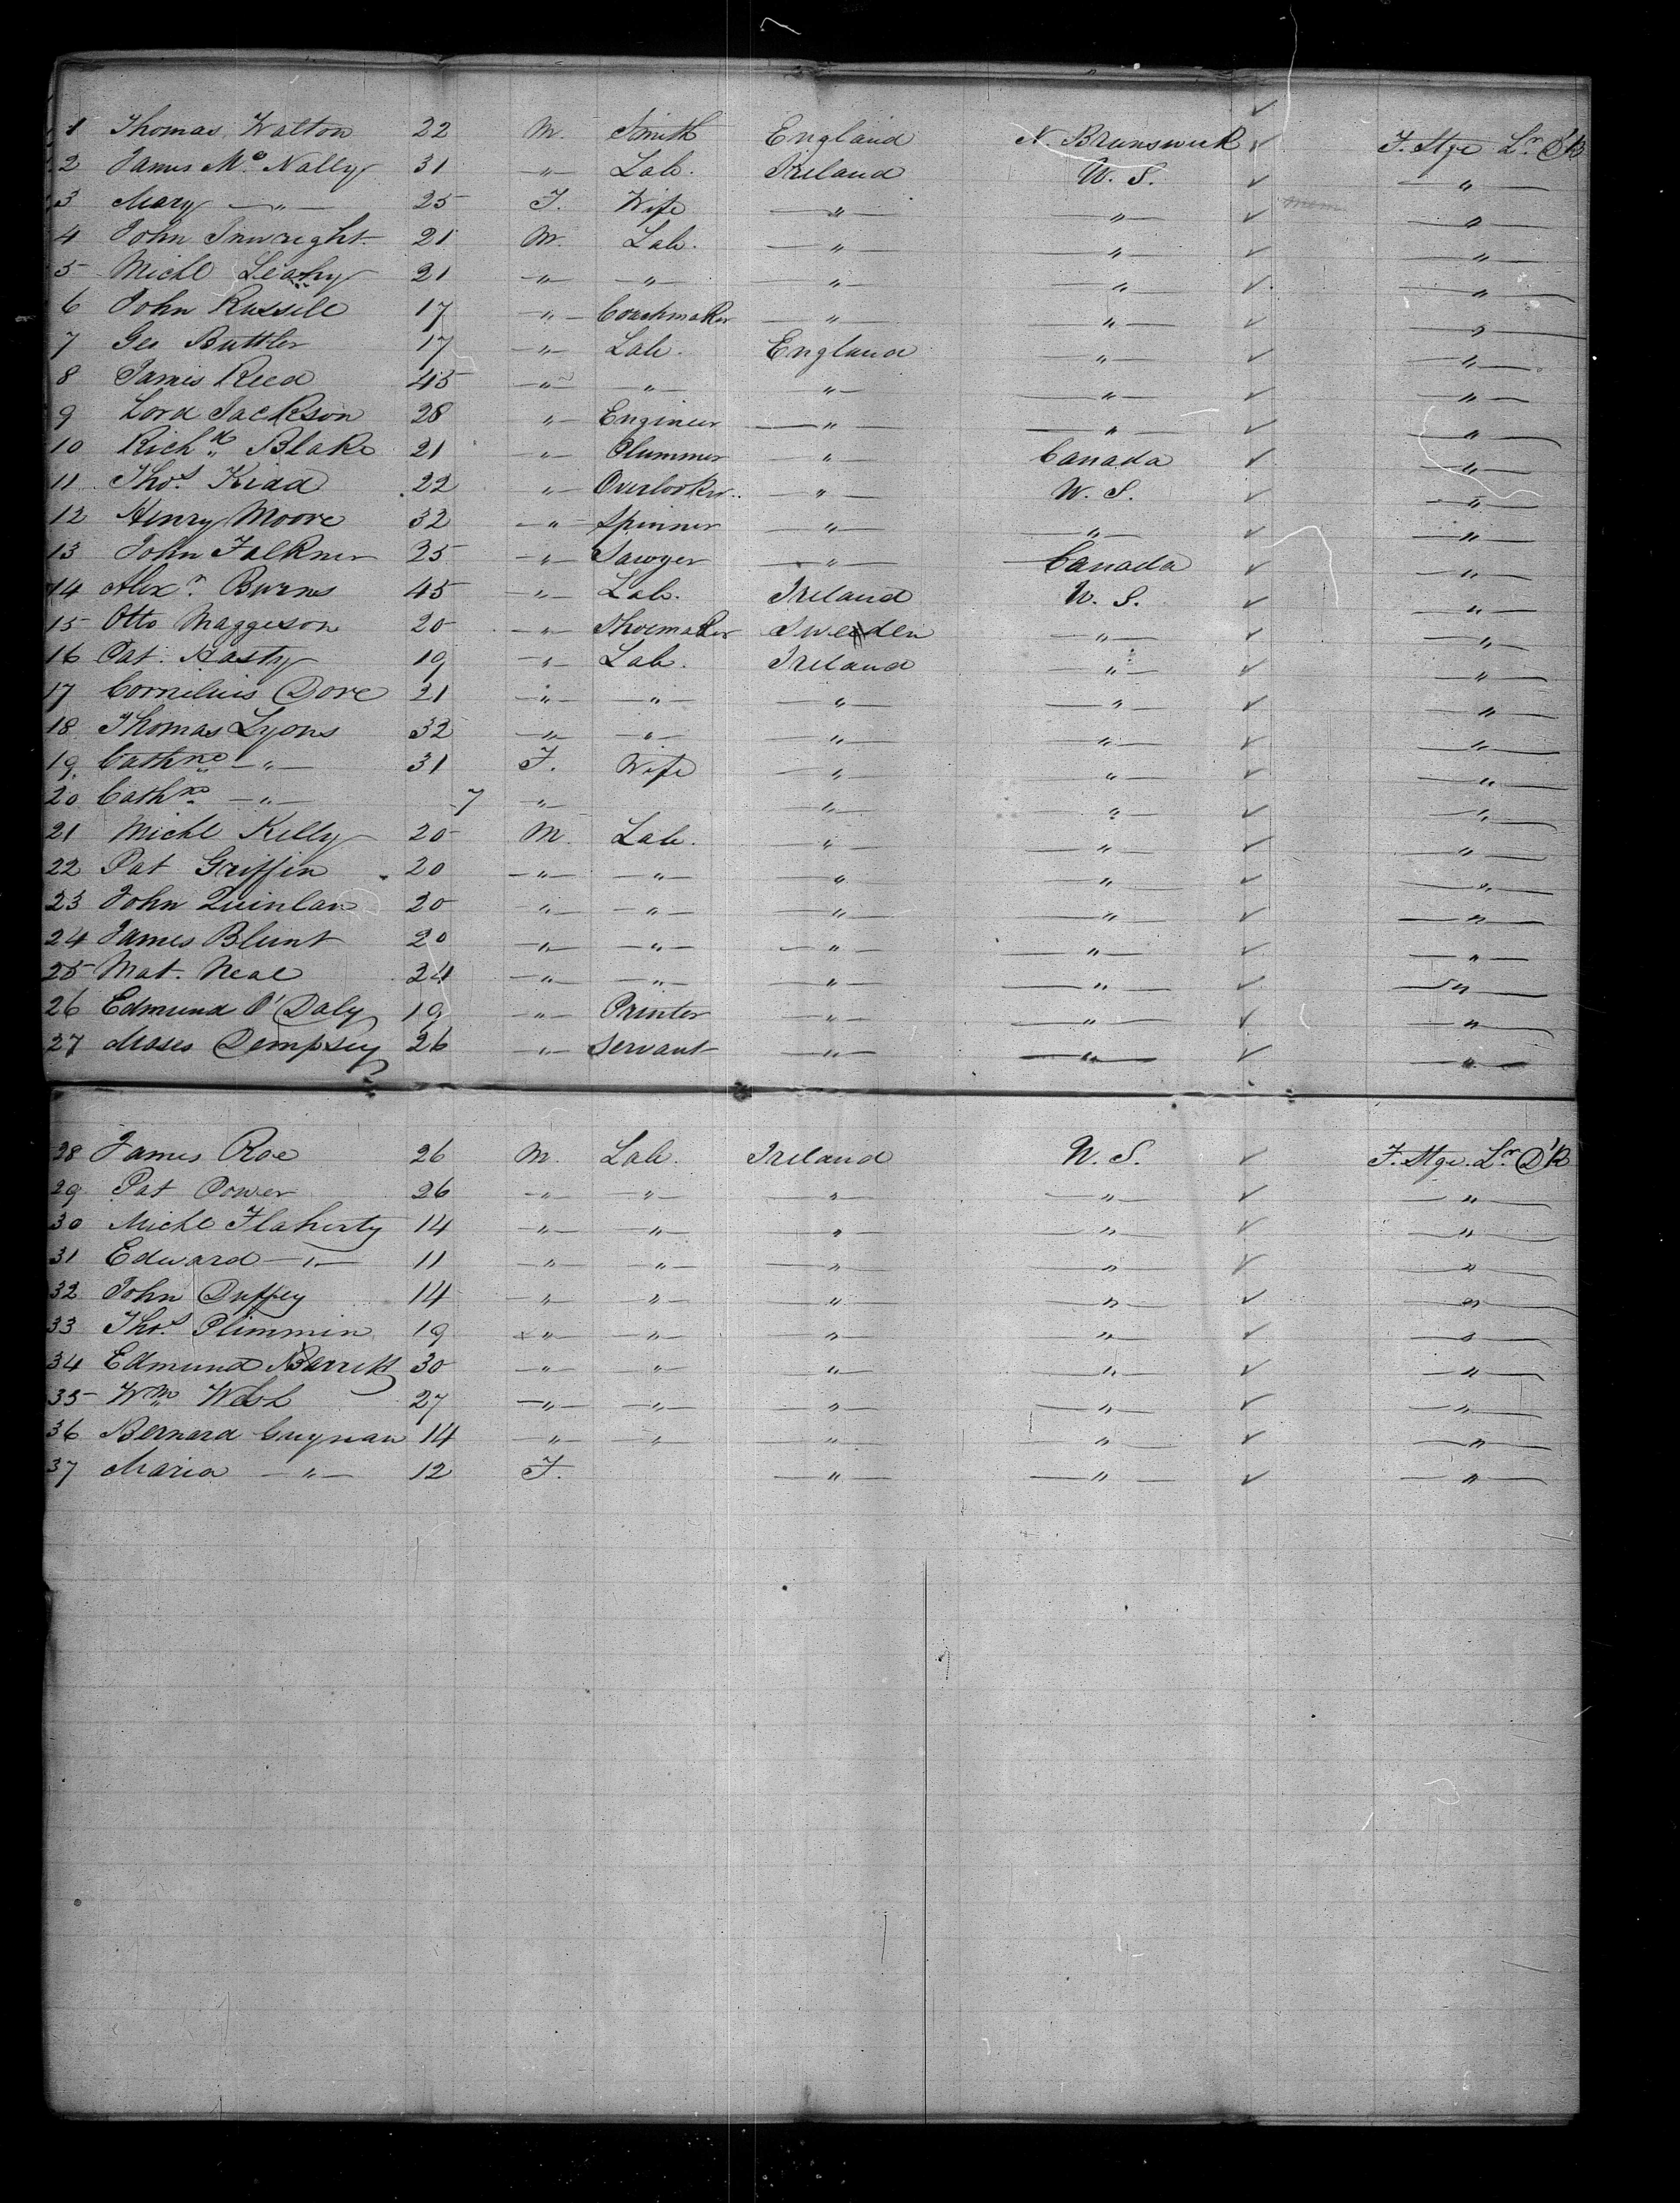 1 Thomas Walton 22 M. Smith England N. Brunswick ✓ F. Stge Lr. D'k
2 James Mc Nally 31 " Lab. Ireland U. S. ✓ "
3 Mary " 25 F. Wife " " ✓ "
4 John Inwright 21 M. Lab. " " ✓ "
5 Michl Leahy 21 " " " " ✓ "
6 John Russell 17 " Coachmaker " " ✓ "
7 Geo Buttler 17 " Lab. England " ✓ "
8 James Reed 45 " " " " ✓ "
9 Lord Jackson 28 " Engineer " " ✓ "
10 Richd Blake 21 " Plummer " Canada ✓ "
11 Thos. Kidd 22 " Overlooker " U. S. ✓ "
12 Henry Moore 32 " Spinner " " ✓ "
13 John Falkner 35 " Sawyer " Canada ✓ "
14 Alexr. Burns 45 " Lab. Ireland U. S. ✓ "
15 Otto Maggeson 20 " Shoemaker Sweden " ✓ "
16 Pat. Hasty 19 " Lab. Ireland " ✓ "
17 Cornelius Dore 21 " " " " ✓ "
18 Thomas Lyons 32 " " " " ✓ "
19 Cathne " 31 F. Wife " " ✓ "
20 Cathne " 7 " " " ✓ "
21 Michl Kelly 20 M. Lab. " " ✓ "
22 Pat Griffin 20 " " " " ✓ "
23 John Quinlan 20 " " " " ✓ "
24 James Blunt 20 " " " " ✓ "
25 Mat. Neal 24 " " " " ✓ "
26 Edmund O'Daly 19 " Printer " " ✓ "
27 Moses Dempsey 26 " Servant " " ✓ "
28 James Roe 26 M. Lab. Ireland U. S. ✓ F. Stge. Lr. D'k
29 Pat Power 26 " " " " ✓ "
30 Michl Flaherty 14 " " " " ✓ "
31 Edward " 11 " " " " ✓ "
32 John Duffey 14 " " " " ✓ "
33 Thos. Plimmin 19 " " " " ✓ "
34 Edmund Barrett 30 " " " " ✓ "
35 Wm 27 " " " " ✓ "
36 Bernard 14 " " " " ✓ "
37 Maria " 12 F. " " ✓ "